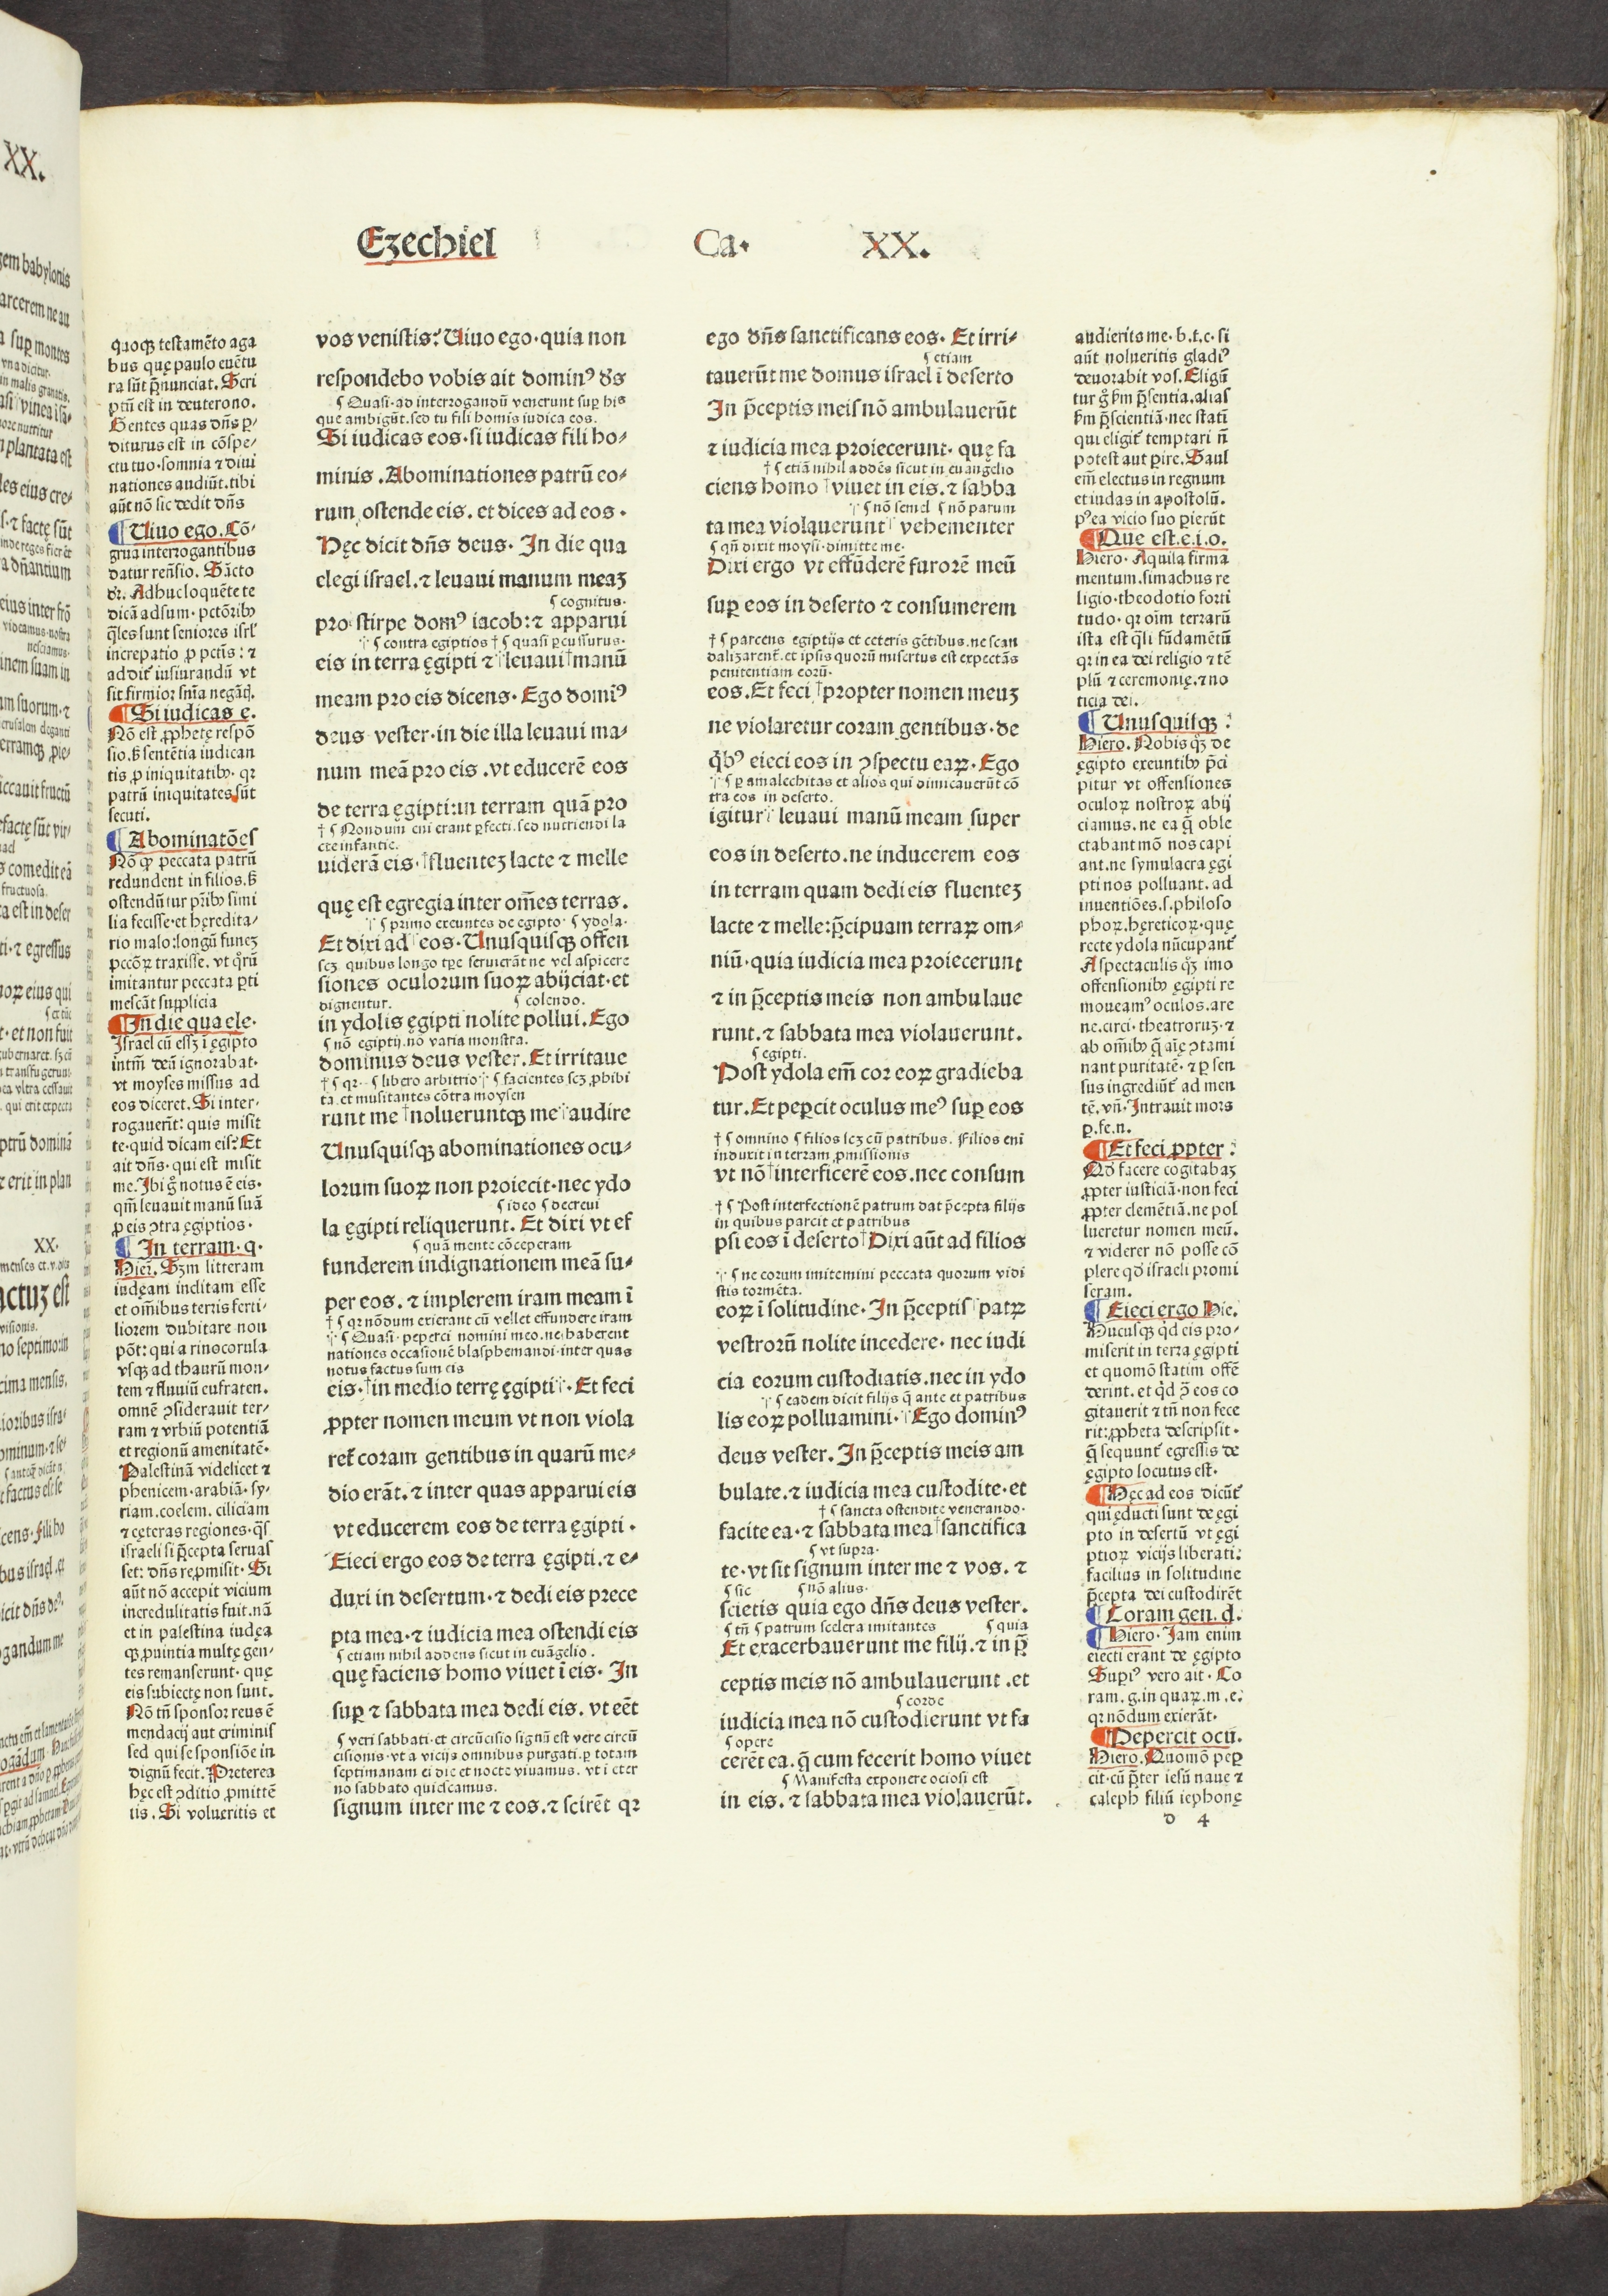 Ezechiel Ca. XX.
quoqꝫ testamẽto aga
bus quę paulo euẽtu
ra sũt p̃nunciat. Scri
ptũ est in deuterono.
Gentes quas dñs p̱-
diturus est in cõspe-
ctu tuo. somnia ⁊ diui
nationes audiũt. tibi
aũt nõ sic dedit dñs
Uiuo ego. Cõ-
grua interrogantibus
datur reñsio. Sãcto
Adhuc loquẽte te
dicã adsum. pctõribꝰ
q̃les sunt seniores isrl'
increpatio ꝓ pctĩs: ⁊
addit' iusiurandũ vt
sit firmior sñia negãdi.
Si iudicas e.
Nõ est ꝓphetę respõ
sio. sꝫ sentẽtia iudican
tis ꝓ iniquitatibꝰ. qꝛ
patrũ iniquitates sũt
secuti.
Abominatões
Nõ ꝙ peccata patrũ
redundent in filios. sꝫ
ostendũtur pr̃ibꝰ simi
lia fecisse. et hęredita-
rio malo: longũ funeꝫ
pccõꝝ traxisse. vt q̊rũ
imitantur peccata ꝑti
mescãt supplicia
In die qua ele.
Israel cũ esseꝫ ĩ ęgipto
intm̃ deũ ignorabat.
vt moyses missus ad
eos diceret. Si inter-
rogauerĩt: quis misit
te. quid dicam eis? Et
ait dñs. qui est misit
me. Ibi g̊ notus ẽ eis.
qm̃ leuauit manũ suã
ꝑ eis ꝯtra ęgiptios.
In terram. q.
Hier. Sꝫm litteram
iudęam inclitam esse
et om̃ibus terris ferti-
liorem dubitare non
põt: qui a rinocorula
vsqꝫ ad thaurũ mon-
tem ⁊ fluuiũ eufraten.
omnẽ ꝯsiderauit ter-
ram ⁊ vrbiũ potentiã
et regionũ amenitatẽ.
Palestinã videlicet ⁊
phenicem. arabiã. sy-
riam. coelem. ciliciam
⁊ cęteras regiones. q̃s
israeli si p̃cepta seruas
set: dñs reꝓmisit. Si
aũt nõ accepit vicium
incredulitatis fuit. nã
et in palestina iudęa
qꝫ ꝓuintia multę gen-
tes remanserunt. quę
eis subiectę non sunt.
Nõ tñ sponsor reus ẽ
mendacij aut criminis
sed qui se sponsiõe in
dignũ fecit. Preterea
hęc est ꝯditio ꝓmittẽ
tis. Si volueritis et
vos venistis? Uiuo ego. quia non
respondebo vobis ait dominꝰ de͂s
¶ Quasi. ad interrogandũ venerunt suꝑ his
que ambigũt. sed tu fili homis iudica eos.
Si iudicas eos. si iudicas fili ho-
minis. Abominationes patrũ eo-
rum ostende eis. et dices ad eos.
Hęc dicit dñs deus. In die qua
elegi israel. ⁊ leuaui manum meaꝫ
¶ cognitus.
pro stirpe domꝰ iacob: ⁊ apparui
¶ contra egiptios † ¶ quasi ꝑcussurus.
eis in terra ęgipti ⁊ leuaui † manũ
meam pro eis dicens. Ego domiꝰ
deus vester. in die illa leuaui ma-
num meã pro eis. vt educerẽ eos
de terra ęgipti: in terram quã pro
† ¶ Nondum eni erant ꝑfecti. sed nutriendi la
cte infantie.
uiderã eis. † fluenteꝫ lacte ⁊ melle
quę est egregia inter om̃es terras.
¶ primo exeuntes de egipto ¶ ydola.
Et dixi ad eos. Unusquisqꝫ offen
scꝫ quibus longo tp̃e seruierãt ne vel aspicere
siones oculorum suoꝝ abijciat. et
dignentur. ¶ colendo.
in ydolis ęgipti nolite pollui. Ego
¶ nõ egiptij. nõ varia monstra.
dominus deus vester. Et irritaue
† ¶ qꝛ. ¶ libero arbitrio ¶ facientes scꝫ ꝓhibi
ta. et musitantes cõtra moysen
runt me † nolueruntqꝫ me audire
Unusquisqꝫ abominationes ocu-
lorum suoꝝ non proiecit. nec ydo
¶ ideo ¶ decreui
la ęgipti reliquerunt. Et dixi vt ef
¶ quã mente cõceperam
funderem indignationem meã su-
per eos. ⁊ implerem iram meam ĩ
† ¶ qꝛ nõdum exierant cũ vellet effundere iram
¶ Quasi. peperci nomini meo. ne haberent
nationes occasionẽ blasphemandi. inter quas
notus factus sum eis
eis. † in medio terrę ęgipti. Et feci
ꝓpter nomen meum vt non viola
ret' coram gentibus in quarũ me-
dio erãt. ⁊ inter quas apparui eis
vt educerem eos de terra ęgipti.
Eieci ergo eos de terra ęgipti. ⁊ e-
duxi in desertum. ⁊ dedi eis prece
pta mea. ⁊ iudicia mea ostendi eis
¶ etiam nihil addens sicut in euãgelio.
quę faciens homo viuet ĩ eis. In
suꝑ ⁊ sabbata mea dedi eis. vt eẽt
¶ veri sabbati. et circũcisio signũ est vere circũ
cisionis. vt a vicijs omnibus purgati. ꝑ totam
septimanam ei die et nocte viuamus. vt i eter
no sabbato quiescamus.
signum inter me ⁊ eos. ⁊ scirẽt qꝛ
ego dñs sanctificans eos. Et irri-
¶ etiam
tauerũt me domus israel ĩ deserto
In p̃ceptis meis nõ ambulauerũt
⁊ iudicia mea proiecerunt. quę fa
† ¶ etiã nihil addẽs sicut in euangelio
ciens homo † viuet in eis. ⁊ sabba
¶ nõ semel ¶ nõ parum
ta mea violauerunt vehementer
¶ qñ dixit moysi. dimitte me.
Dixi ergo vt effũderẽ furorẽ meũ
suꝑ eos in deserto ⁊ consumerem
† ¶ parcens egiptijs et ceteris gẽtibus. ne scan
daliꝫarent'. et ipsis quorũ misertus est expectãs
penitentiam eorũ.
eos. Et feci † propter nomen meuꝫ
ne violaretur coram gentibus. de
q̃bꝰ eieci eos in ꝯspectu eaꝝ. Ego
¶ ꝑ amalechitas et alios qui dimicauerũt cõ
tra eos in deserto.
igitur leuaui manũ meam super
eos in deserto. ne inducerem eos
in terram quam dedi eis fluenteꝫ
lacte ⁊ melle: p̃cipuam terraꝝ om-
niũ. quia iudicia mea proiecerunt
⁊ in p̃ceptis meis non ambulaue
runt. ⁊ sabbata mea violauerunt.
¶ egipti.
Post ydola em̃ cor eoꝝ gradieba
tur. Et peꝑcit oculus meꝰ suꝑ eos
† ¶ omnino ¶ filios scꝫ cũ patribus. Filios eni
induxit in terram ꝓmissionis
vt nõ † interficerẽ eos. nec consum
† ¶ Post interfectionẽ patrum dat p̃cepta filijs
in quibus parcit et patribus
psi eos ĩ deserto † Dixi aũt ad filios
¶ ne eorum imitemini peccata quorum vidi
stis tormẽta.
eoꝝ ĩ solitudine. In p̃ceptis patꝝ
vestrorũ nolite incedere. nec iudi
cia eorum custodiatis. nec in ydo
¶ eadem dicit filijs q̃ ante et patribus
lis eoꝝ polluamini. Ego dominꝰ
deus vester. In p̃ceptis meis am
bulate. ⁊ iudicia mea custodite. et
† ¶ sancta ostendite venerando.
facite ea. ⁊ sabbata mea † sanctifica
¶ vt supra.
te. vt sit signum inter me ⁊ vos. ⁊
¶ sic ¶ nõ alius.
scietis quia ego dñs deus vester.
¶ tñ ¶ patrum scelera imitantes ¶ quia
Et exacerbauerunt me filij. ⁊ in p̃
ceptis meis nõ ambulauerunt. et
¶ corde
iudicia mea nõ custodierunt vt fa
¶ opere
cerẽt ea. q̃ cum fecerit homo viuet
¶ Manifesta exponere ociosi est
in eis. ⁊ sabbata mea violauerũt.
audierits me. b. t. c. si
aũt nolueritis gladiꝰ
deuorabit vos. Eligũ
tur g̊ sꝫm p̃sentia. alias
sꝫm p̃scientiã. nec statĩ
qui eligit' temptari ñ
potest aut ꝑire. Saul
em̃ electus in regnum
et iudas in apostolũ.
pꝰea vicio suo ꝑierũt
Que est. e. i. o.
Hiero. Aquila firma
mentum. simachus re
ligio. theodotio forti
tudo. qꝛ oĩm terrarũ
ista est q̃si fũdamẽtũ
qꝛ in ea dei religio ⁊ tẽ
plũ ⁊ ceremonię. ⁊ no
ticia dei.
Unusquisqꝫ :
Hiero. Nobis qꝫ de
ęgipto exeuntibꝰ p̃ci
pitur vt offensiones
oculoꝝ nostroꝝ abij
ciamus. ne ea q̃ oble
ctabant mõ nos capi
ant. ne symulacra ęgi
pti nos polluant. ad
inuentiões. s. philoso
phoꝝ. hęreticoꝝ. quę
recte ydola nũcupant'
A spectaculis qꝫ imo
offensionibꝰ ęgipti re
moueamꝰ oculos. are
ne. circi. theatroruꝫ. ⁊
ab om̃ibꝰ q̃ aĩę ꝯtami
nant puritatẽ. ⁊ ꝑ sen
sus ingrediũt' ad men
tẽ. vñ. Intrauit mors
ꝑ. fe. n.
Et feci ꝓpter :
Qď facere cogitabaꝫ
ꝓpter iusticiã. non feci
ꝓpter clemẽtiã. ne pol
lueretur nomen meũ.
⁊ viderer nõ posse cõ
plere qď israeli promi
seram.
Eieci ergo Hie.
Hucusqꝫ qď eis pro-
miserit in terra ęgipti
et quomõ statim offẽ
derint. et qď ꝑ eos co
gitauerit ⁊ tñ non fece
rit: ꝓpheta descripsit.
q̃ sequunt' egressis de
ęgipto locutus est.
Hęc ad eos dicũt'
qui educti sunt de ęgi
pto in desertũ vt ęgi
ptioꝝ vicijs liberati:
facilius in solitudine
p̃cepta dei custodirẽt
Coram gen. d.
Hiero. Iam enim
eiecti erant de ęgipto
Supiꝰ vero ait. Co
ram. g. in quaꝝ. m. e.
qꝛ nõdum exierãt.
Pepercit ocũ.
Hiero. Quomõ peꝑ
cit. cũ p̃ter iesũ naue ⁊
caleph filiũ iephonę
d 4